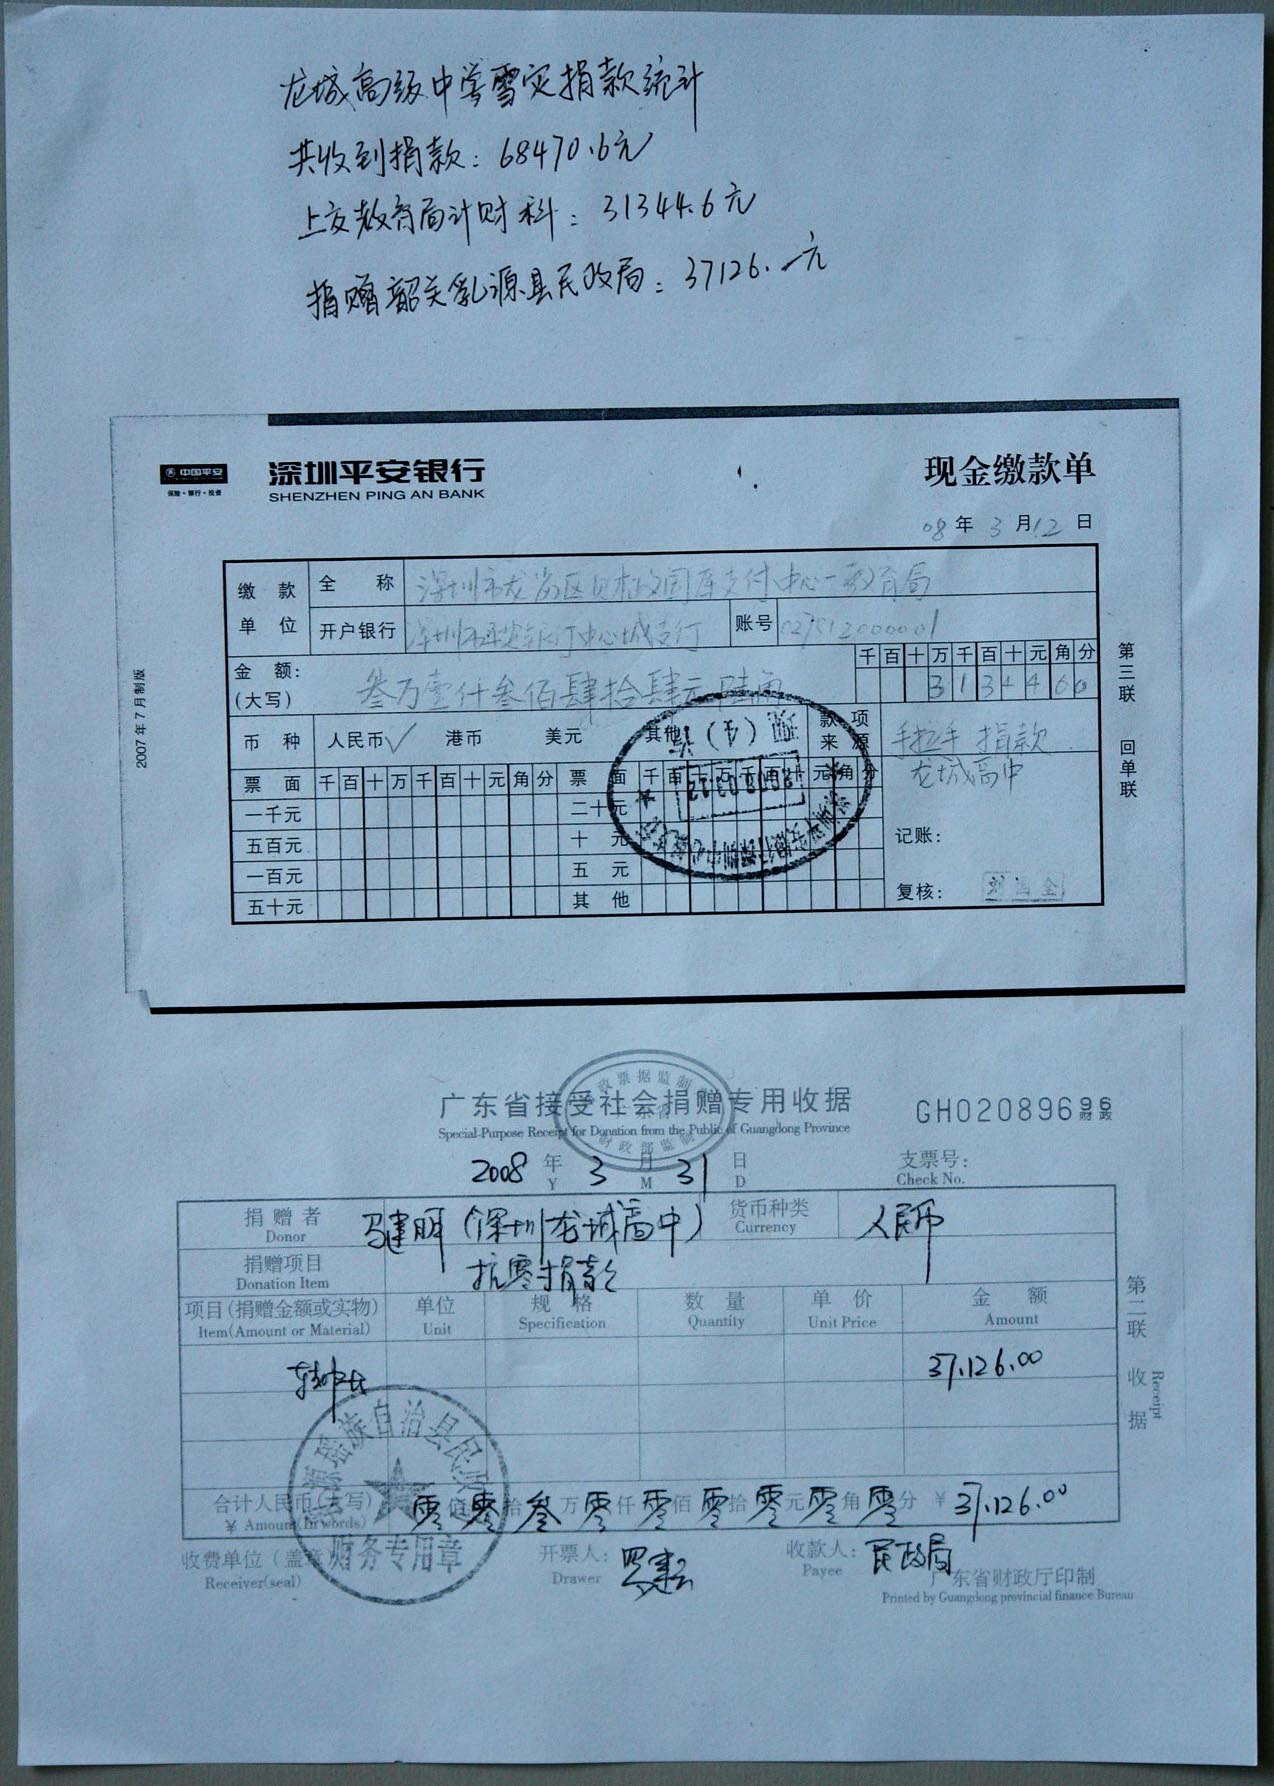 龙城高级中学雪灾捐款统计
共收到捐款：68470.6元
上交教育局计财科：31344.6元
捐赠韶关乳源县民政局：37126.一元
中国平安
保险·银行·投资
深圳平安银行
SHENZHEN PING AN BANK
现金缴款单
08年3月12日
缴款单位
全称 深圳市龙岗区财政国库支付中心-教育局
开户银行 深圳平安银行中心城支行 账号
金额：(大写) 叁万壹仟叁佰肆拾肆元陆角
千百十万千百十元角分
3134460
币种 人民币√ 港币 美元 其他
款项来源 手拉手捐款
龙城高中
票面 千百十万千百十元角分 票面 千百十万千百十元角分
一千元 二十元
五百元 十元
一百元 五元
五十元 其他
记账：
复核：
2008.03.12
第三联 回单联
2007年7月制版
广东省接受社会捐赠专用收据
Special-Purpose Receipt for Donation from the Public of Guangdong Province
GH02089696 财政
2008年3月31日
Y M D
支票号：
Check No.
捐赠者 马建明（深圳龙城高中） 货币种类 人民币
Donor Currency
捐赠项目 抗雪捐款
Donation Item
项目(捐赠金额或实物) 单位 规格 数量 单价 金额
Item(Amount or Material) Unit Specification Quantity Unit Price Amount
37,126.00
合计人民币(大写) 零佰零拾叁万零仟零佰零拾零元零角零分 ￥37,126.00
￥ Amount(In words)
收费单位（盖章） 开票人： 收款人：民政局
Receiver(seal) Drawer Payee
广东省财政厅印制
Printed by Guangdong provincial finance Bureau
源瑶族自治县民政
财务专用章
第二联 收据
Receipt